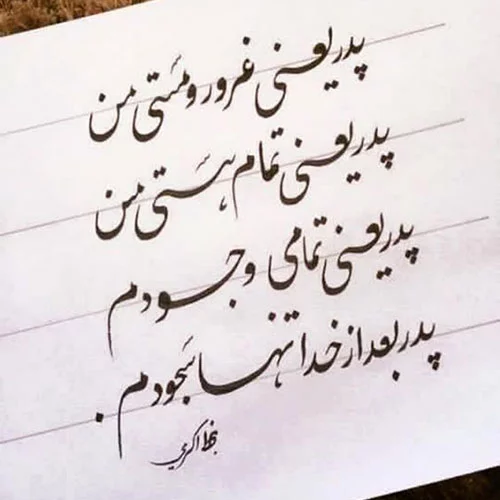 پدر یعنی غرور و مستی من
پدر یعنی تمام هستی من
پدر یعنی تمامی وجودم
پدر بعد از خدا تنها سجودم.
بخط اکبری